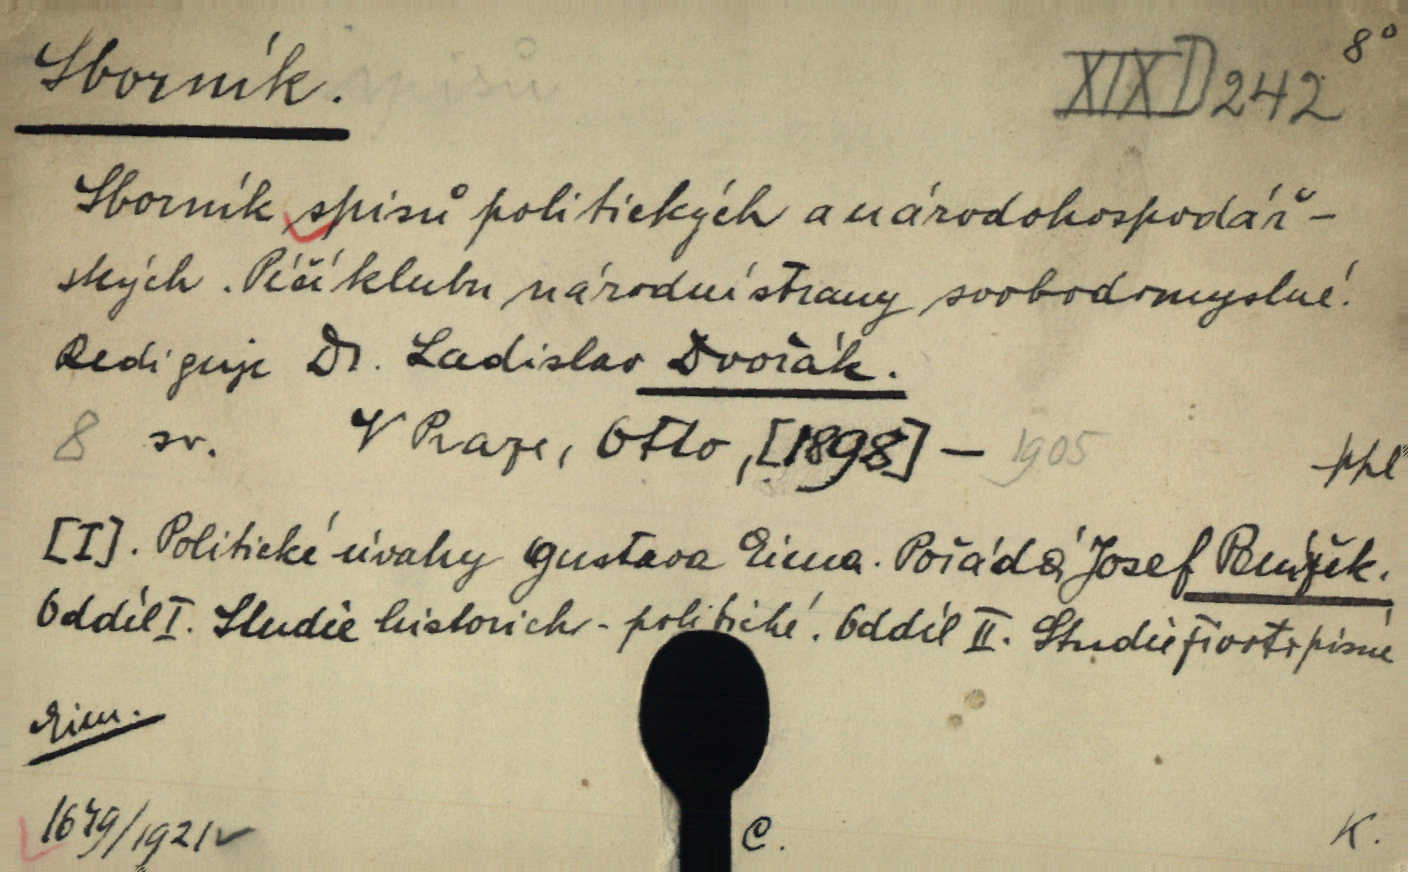 8°
Sborník. spisů XIX D 242
Sborník spisů politických a národohospodář-
ských. Péčí klubu národní strany svobodomyslné.
Rediguje Dr. Ladislav Dvořák.
8 sv. V Praze, Otto, [1898] — 1905
ppl
[I]. Politické úvahy Gustava Eima. Pořádá Josef Penížek.
Oddíl I. Studie historicko-politické. Oddíl II. Studie životopisné
Eim.
1649/1921 C. K.